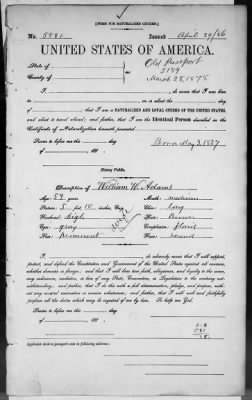 [FORM FOR NATURALIZED CITIZEN.]
No. 5281 Issued April 29/86
UNITED STATES OF AMERICA.
State of Old Passport
County of 5189
March 28, 1878
I, do swear that I was born
in on or about the day of
that I am a NATURALIZED AND LOYAL CITIZEN OF THE UNITED STATES,
and about to travel abroad; and further, that I am the Identical Person described in the
Certificate of Naturalization herewith presented.
Sworn to before me this day Born May 3, 1827
of 188 .
Notary Public.
Description of William W. Adams
Age: 59 years. Mouth: medium
Stature: 5 feet, 10 inches, Eng. Chin: long
Forehead: high Hair: Brown
Eyes: gray Complexion: florid
Nose: prominent Face: round
wife
I, do solemnly swear that I will support,
protect, and defend the Constitution and Government of the United States against all enemies,
whether domestic or foreign; and that I will bear true faith, allegiance, and loyalty to the same,
any ordinance, resolution, or law of any State, Convention, or Legislature to the contrary notwithstanding;
and further, that I do this with a full determination, pledge, and purpose, without
any mental reservation or evasion whatsoever; and further, that I will well and faithfully
perform all the duties which may be required of me by law. So help me God.
Sworn to before me this day
of 188 .
Applicant desires passport sent to following address: